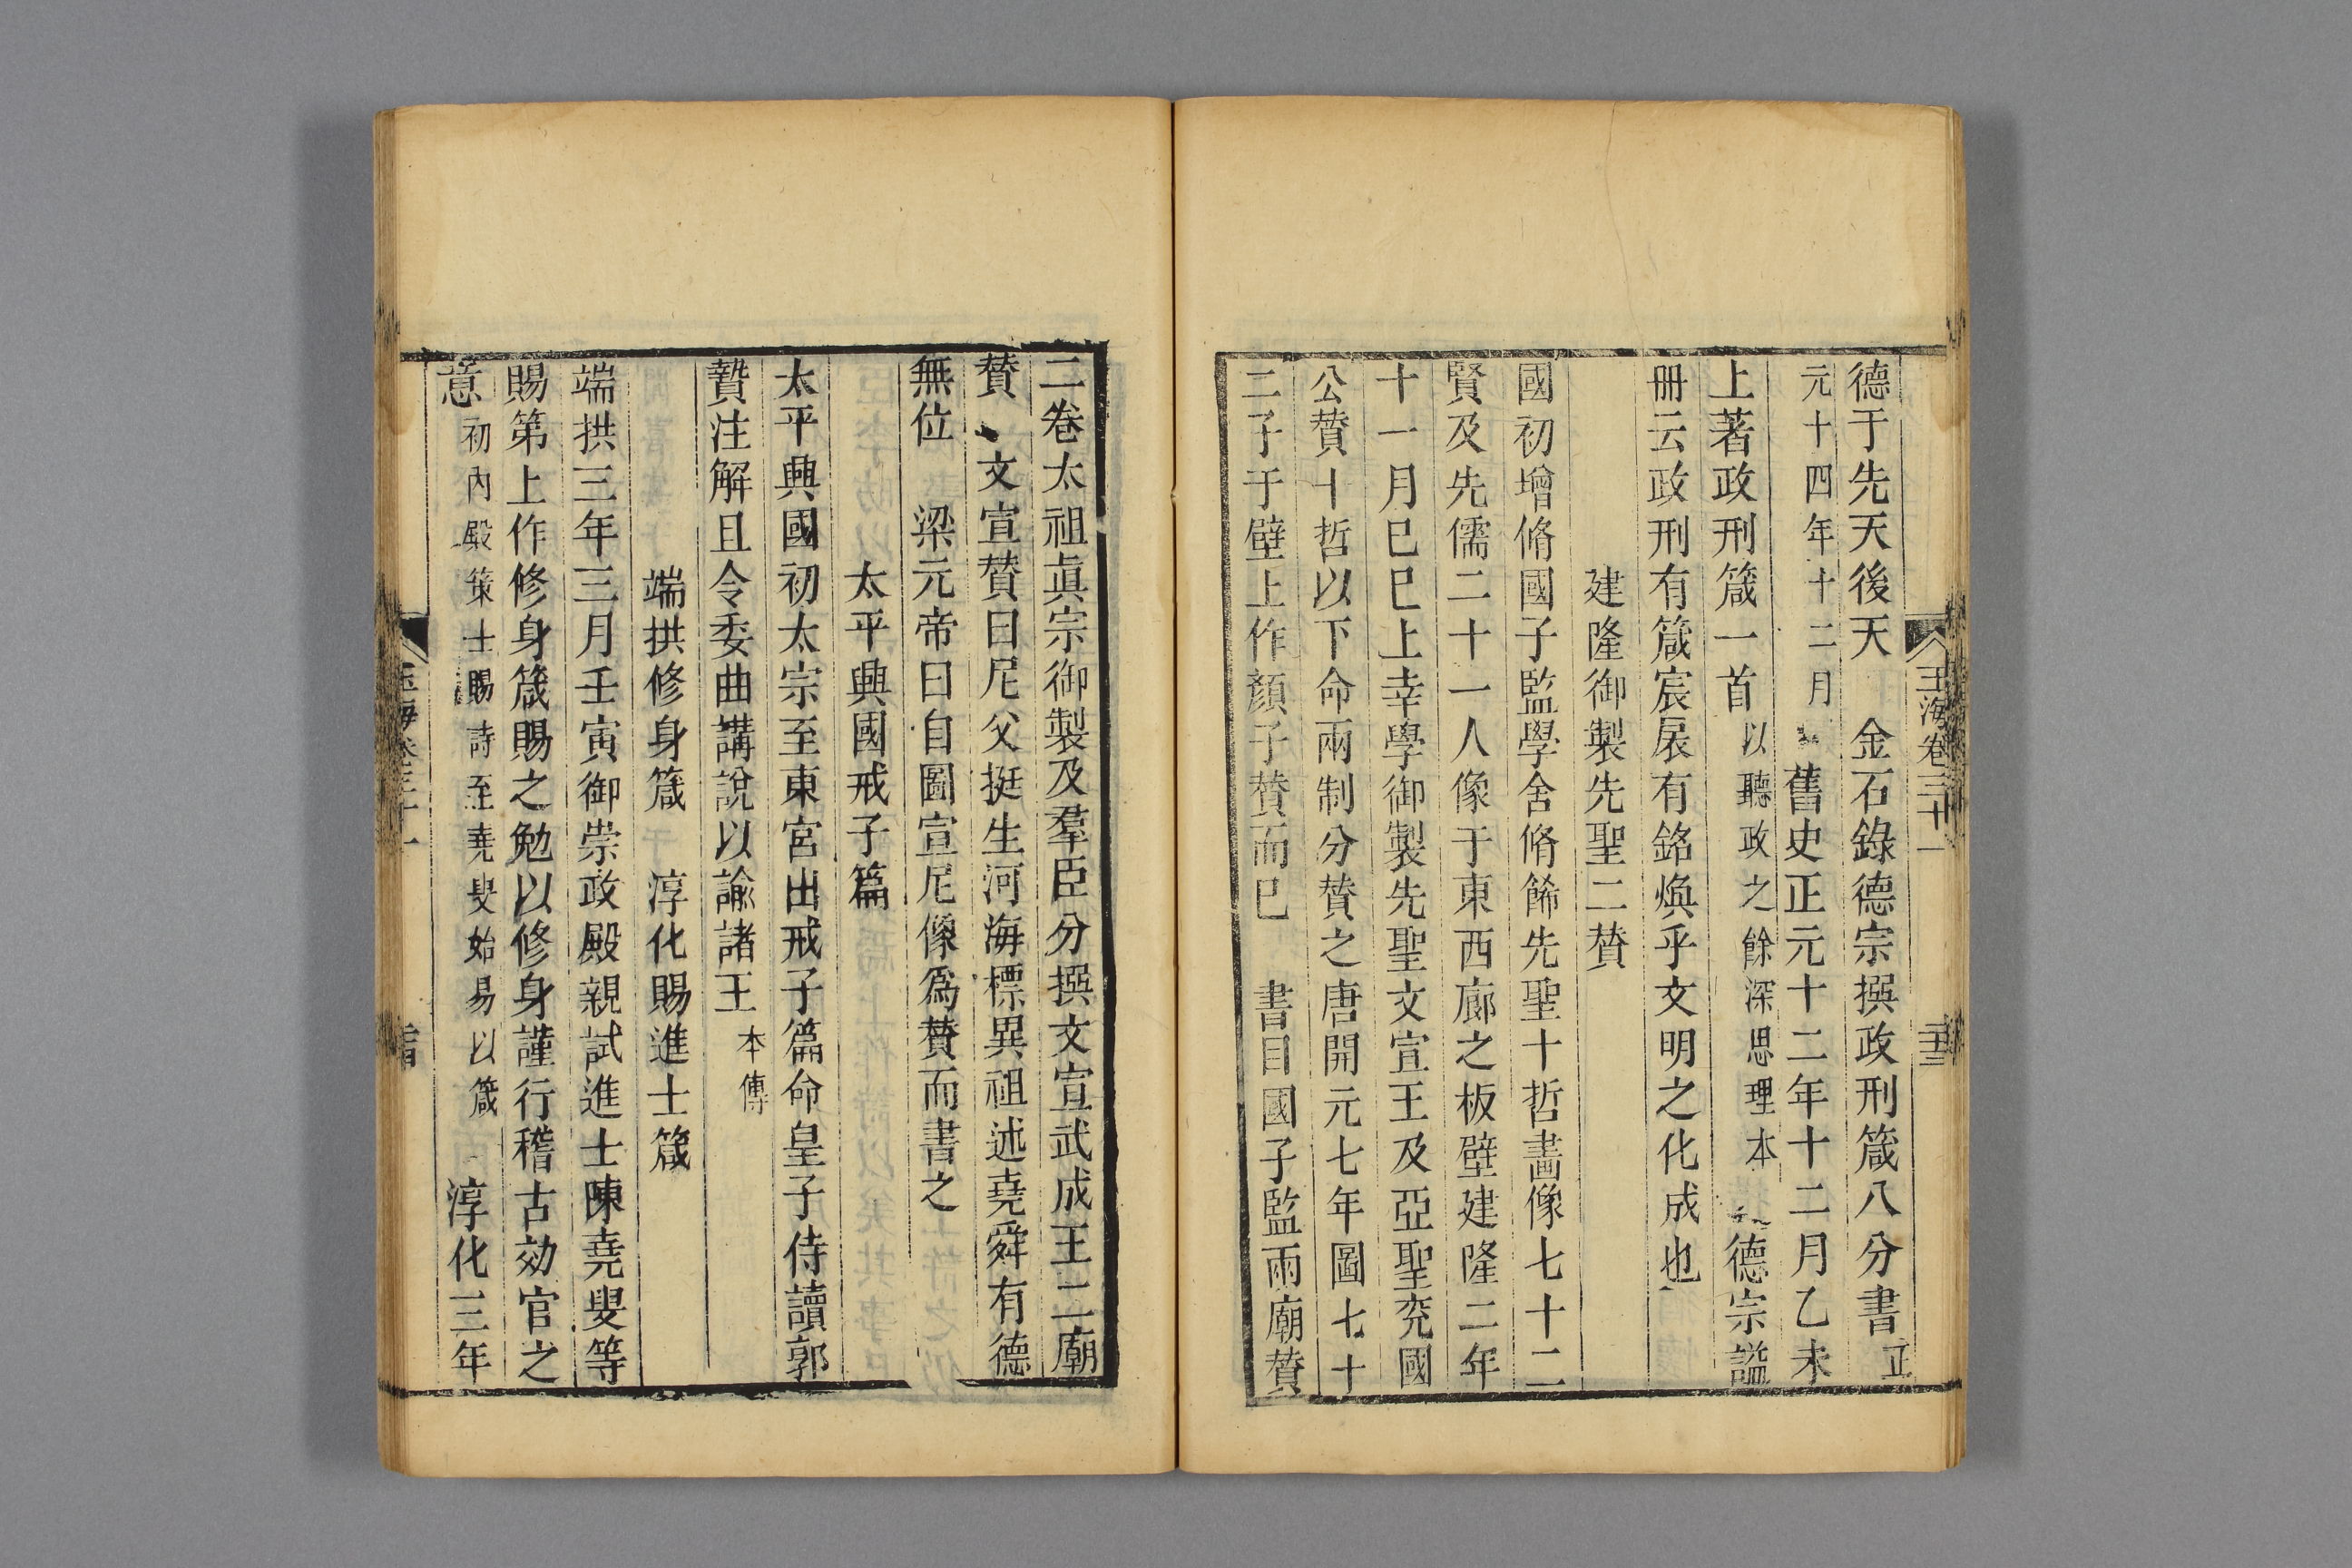 玉海卷三十一
德于先天後天 金石錄德宗撰政刑箴八分書正
元十四年十二月 舊史正元十二年十二月乙未
上著政刑箴一首以聽政之餘深思理本 德宗謚
册云政刑有箴宸扆有銘煥乎文明之化成也
建隆御製先聖二贊
國初增脩國子監學舍脩餙先聖十哲畵像七十二
賢及先儒二十一人像于東西廊之板壁建隆二年
十一月巳巳上幸學御製先聖文宣王及亞聖兖國
公贊十哲以下命兩制分贊之唐開元七年圖七十
二子于壁上作顏子贊而巳 書目國子監兩廟贊
二卷太祖眞宗御製及羣臣分撰文宣武成王二廟
贊 文宣贊曰尼父挺生河海標異祖述堯舜有德
無位 梁元帝曰自圖宣尼像爲贊而書之
太平興國戒子篇
太平興國初太宗至東宮出戒子篇命皇子侍讀郭
贄注解且令委曲講說以諭諸王本傳
端拱修身箴 淳化賜進士箴
端拱三年三月壬寅御崇政殿親試進士陳堯叟等
賜第上作修身箴賜之勉以修身謹行稽古効官之
意初內殿策士賜詩至堯叟始易以箴 淳化三年
玉海卷三十一